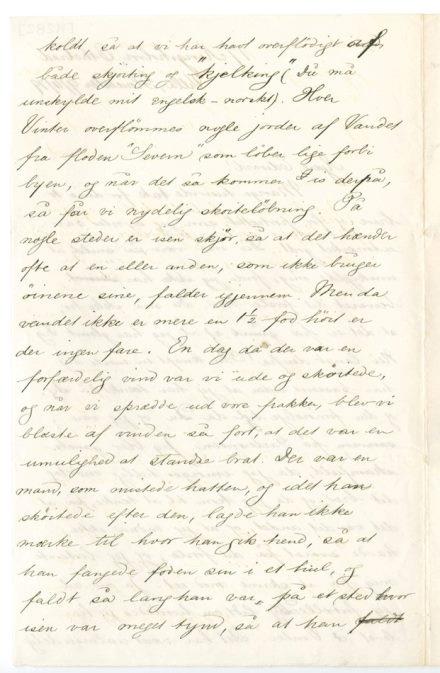 koldt så at vi har havt overflødigt af
både skjøiting og "kjelking" (Du må
undskylde mit engelsk-norskt). Hver
Vinter overflømmes nogle jorder af Vandet
fra floden "Severn", som løber lige forbi
byen, og når det så kommer Is derpå,
så får vi nydelig skøiteløbning. På
nogle steder er isen skjør, så at det hænder
ofte at en eller anden, som ikke bruger
øinene sine, falder igjennem. Men da
vandet ikke er mere en 1½ fod høit er
der ingen fare. En dag da der var en
forfærdelig vind var vi ude og skøitede,
og når vi sprædde ud vore frakker, blev vi
blæste af vinden så fort, at det var en
umulighed at standse brat. Der var en
mand, som mistede hatten, og idet han
skøitede efter den, lagde han ikke
mærke til hvor han gik hend, så at
han fangede foden sin i et hul, og
faldt så lang han var, på et sted hvor
isen var meget tynd, så at han faldt